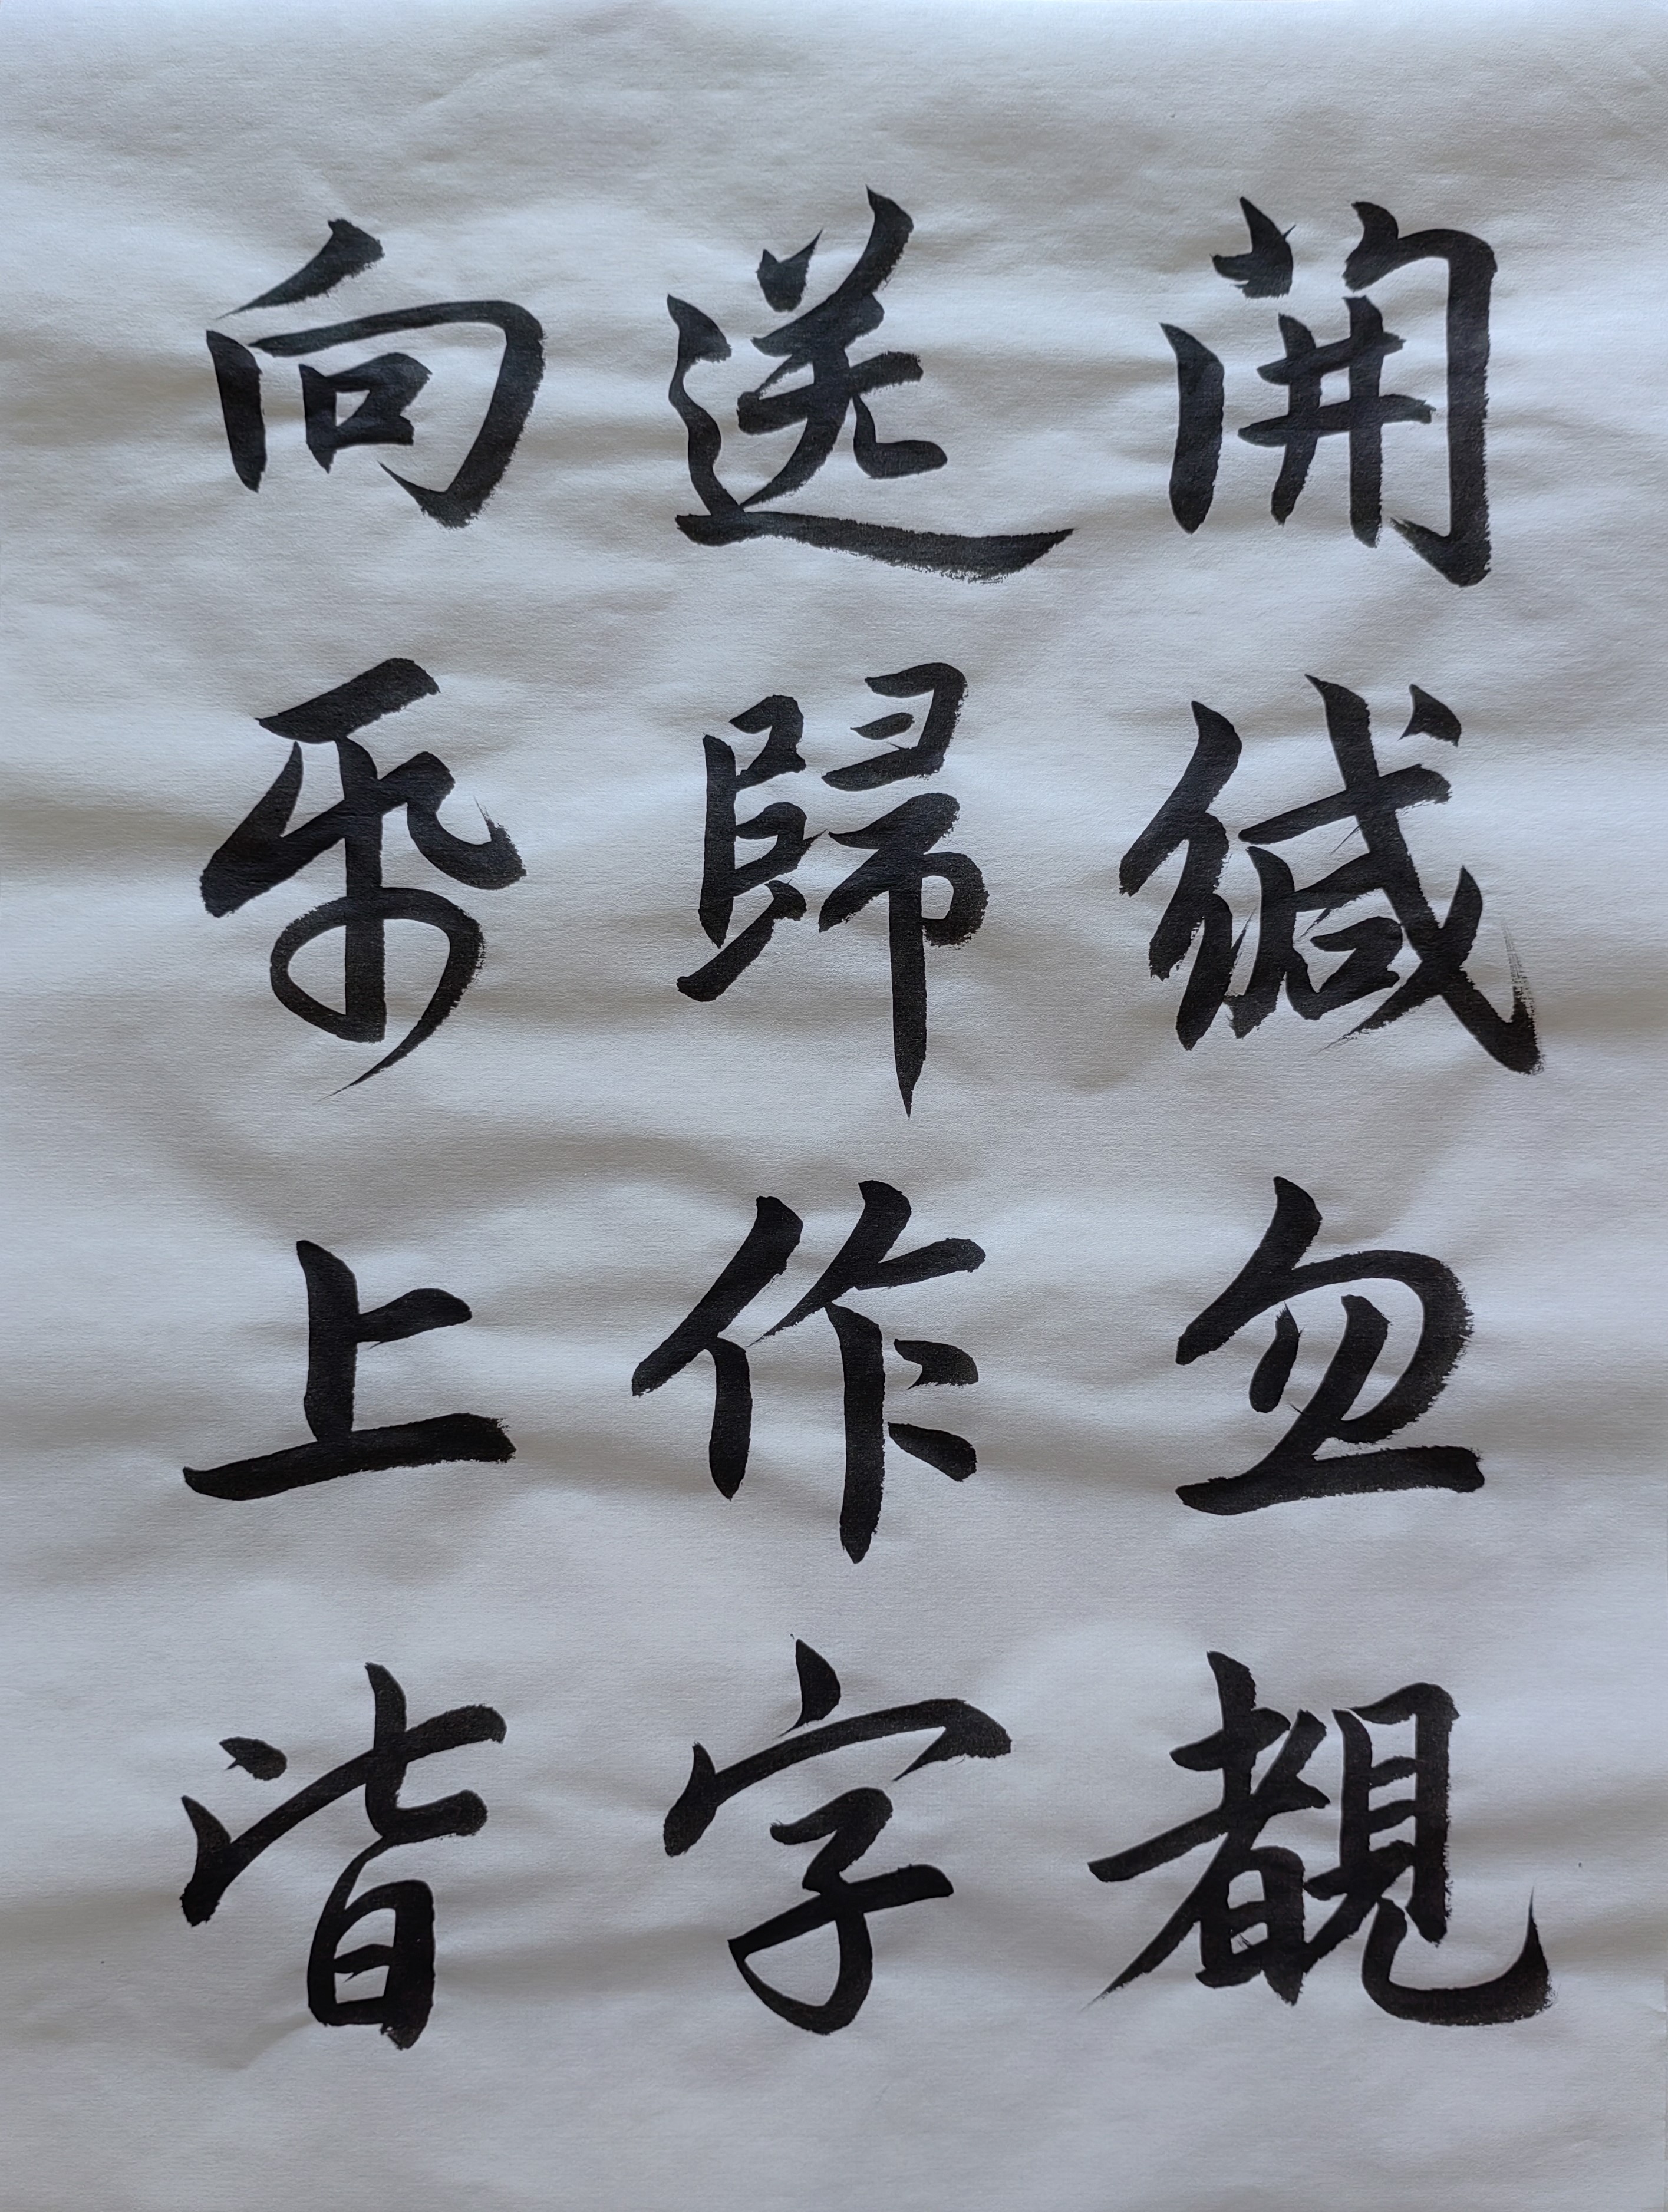 開緘忽覩
送歸作字
向帋上皆